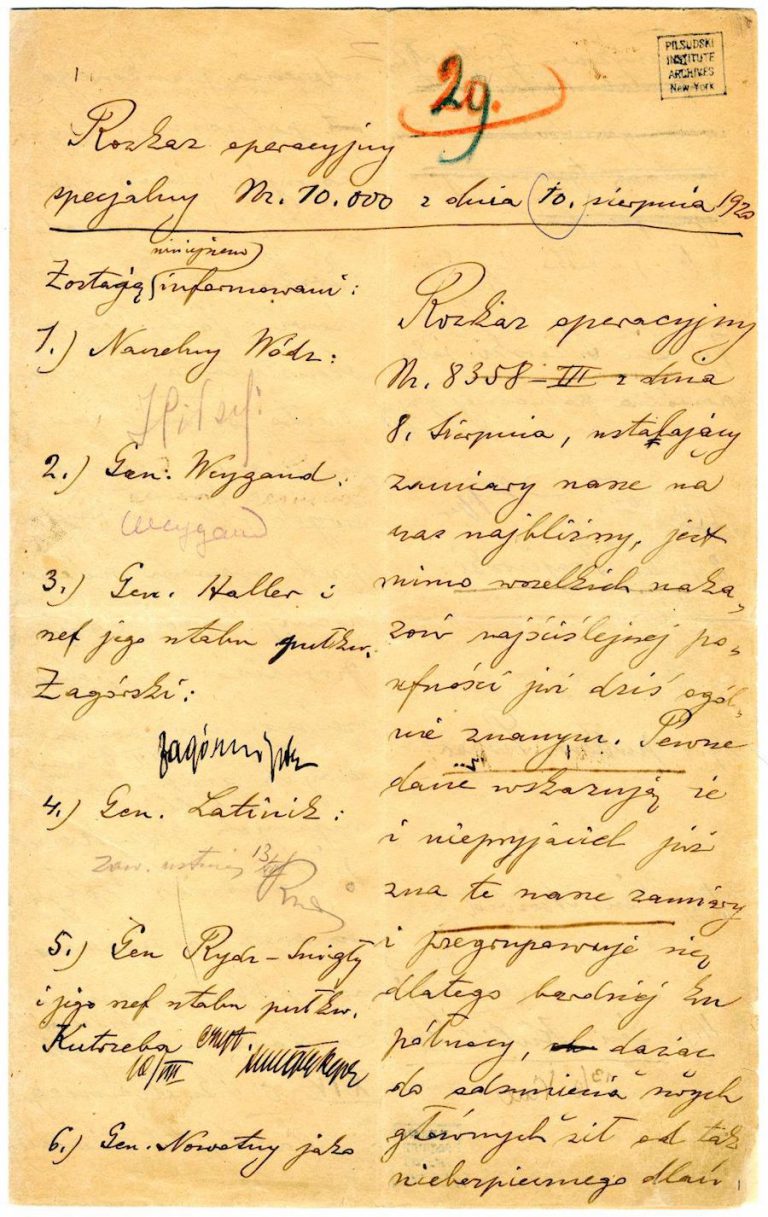 PILSUDSKI
INSTITUTE
ARCHIVES
New York
29.
Rozkaz operacyjny
specjalny Nr. 10.000 z dnia 10. sierpnia 1920
niniejszem
Zostają informowani:
1.) Naczelny Wódz:
JPiłsuf:
2.) Gen: Weygand:
Weygand
3.) Gen. Haller i
szef jego sztabu pułkw.
Zagórski:
Zagórski
4.) Gen. Latinik:
zaw. ustnie 13/VIII
5.) Gen Rydz-Smigły
i jego szef sztabu pułkw.
Kutrzeba
10/VIII
6.) Gen. Nowotny jako
Rozkaz operacyjny
Nr. 8358-III z dnia
8. Sierpnia, ustalający
zamiary nasze na
czas najbliższy, jest
mimo wszelkich naka„
zów najściślejszej po„
ufności już dziś ogól„
nie znanym. Pewne
dane wskazują że
i nieprzyjaciel już
zna te nasze zamiary
i przegrupowuje się
dlatego bardziej ku
północy, dążąc
do odsunięcia swych
głównych sił od tak
niebezpiecznego dlań